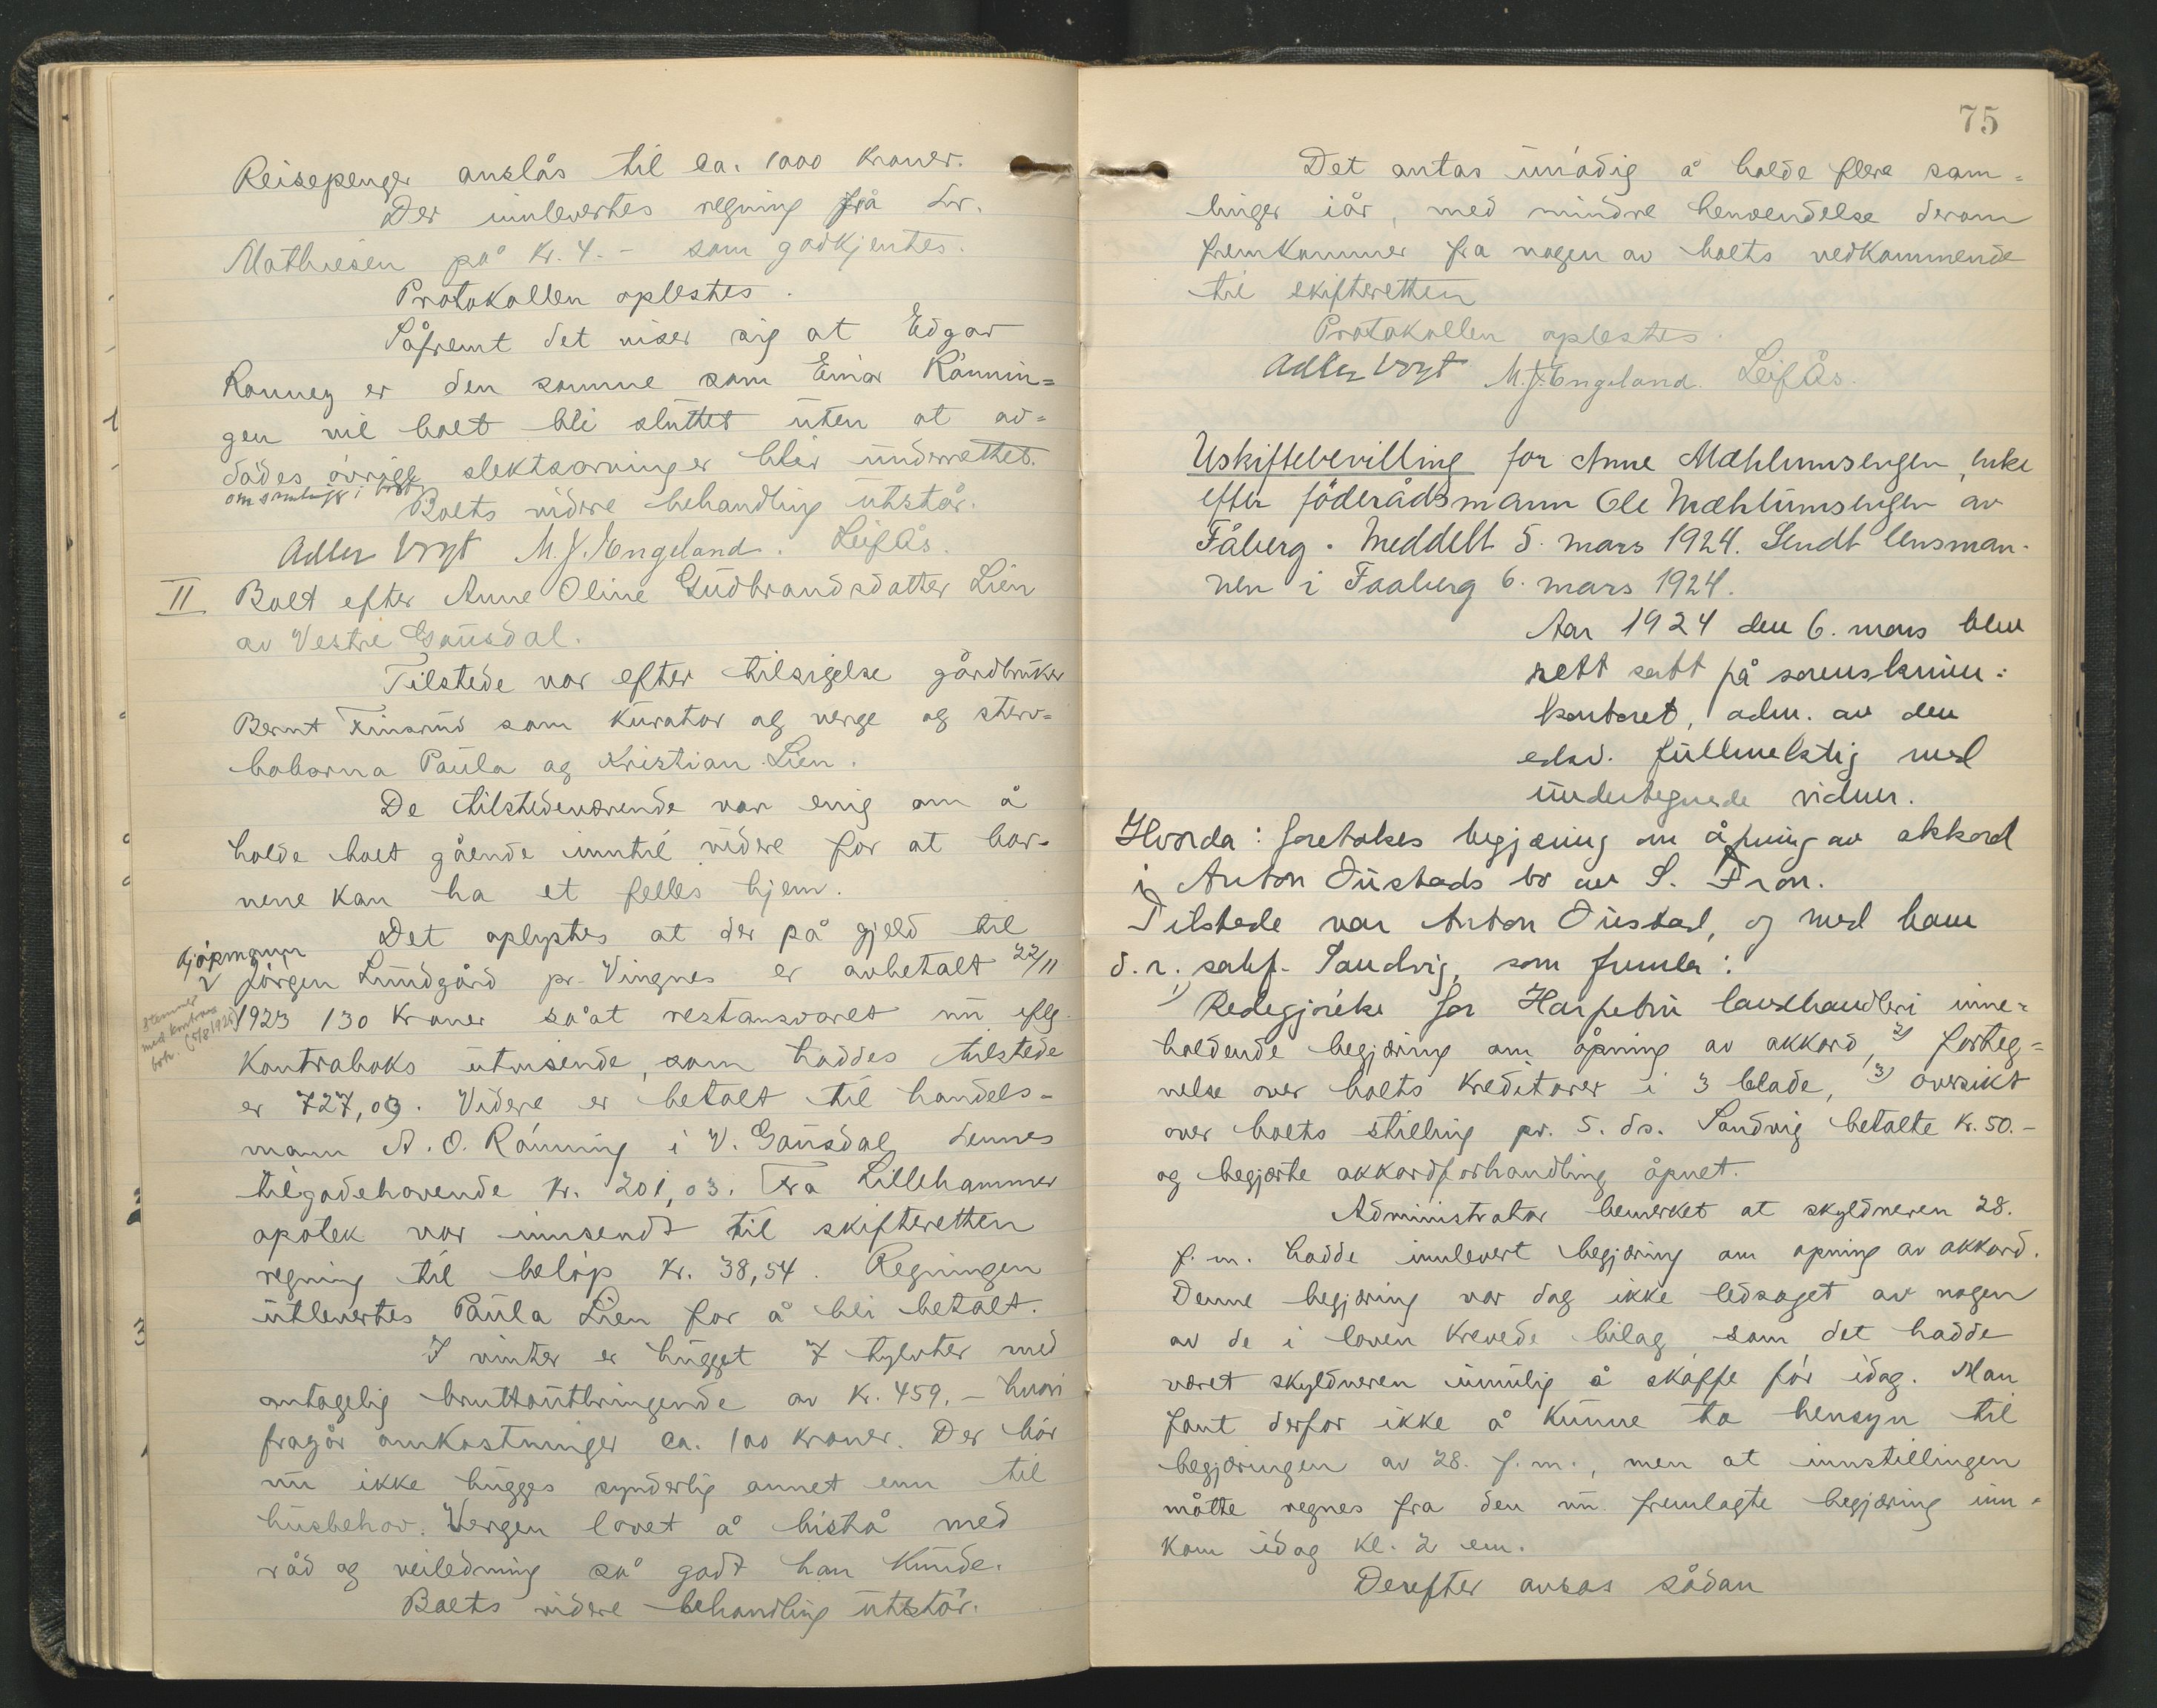 Reisepenger anslås til ca. 1000 kroner.
Der innlevertes regning frå Lr.
Mathiesen på kr. 4.- som godkjentes.
Protokollen oplestes.
Såfremt det viser sig at Edgar
Ronney er den samme som Einar Rönnin=
gen vil boet bli sluttet uten at av=
dödes övrige slektsarvinger blir underrettet.
om samling i boet
Boets videre behandling utstår.
Adler Vogt M. J. Engeland. Leif Ås.
II Boet efter Anne Oline Gudbrandsdatter Lien
av Vestre Gausdal.
Tilstede var efter tilsigelse gårdbruker
Bernt Finsrud som kurator og verge og sterv=
boborna Paula og Kristian Lien.
De tilstedeværende var enig om å
holde boet gående inntil videre for at bor-
nene kan ha et felles hjem.
Det oplystes at der på gjeld til
kjöpmann
v Jörgen Lundgård pr. Vingnes er avbetalt 22/11
stemmer
med kontrab
boh. (5/8 1925)
1923 130 kroner så at restansvaret nu eflg.
kontraboks utvisende, som haddes tilstede
er 727,03. Videre er betalt til handels-
mann A. O. Rönning i V. Gausdal dennes
tilgodehavende kr. 201,03. Fra Lillehammer
apotek var innsendt til skifteretten
regning til belöp kr. 38,54. Regningen
utlevertes Paula Lien for å bli betalt.
I vinter er hugget 7 tylvter med
antagelig bruttoutbringende av kr. 459.- hvori
fragår omkostninger ca. 100 kroner. Der bör
nu ikke hugges synderlig annet enn til
husbehov. Vergen lovet å bistå med
råd og veiledning så godt han kunde.
Boets videre behandling utstår.
75
Det antas unödig å holde flere sam=
linger iår, med mindre henvendelse derom
fremkommer fra nogen av boets vedkommende
til skifteretten
Protokollen oplestes.
Adler Vogt M. J. Engeland. Leif Ås.
Uskiftebevilling for Anne Mæhlumsengen, enke
efter föderådsmann Ole Mæhlumsengen av
Fåberg. Meddelt 5. mars 1924. Sendt lensman-
nen i Faaberg 6. mars 1924.
Aar 1924 den 6. mars blev
rett satt på sorenskriver:
kontoret, adm. av den
edsv. fullmektig med
undertegnede vidner.
Hvorda: foretokes begjæring om åpning av akkord
i Anton Oustads bo av S. Fron.
Tilstede var Anton Oustad, og med ham
o.r. sakf. Sandvig, som fremla:
1) Redegjörelse for Harpebru landhandleri inne=
holdende begjæring om åpning av akkord, 2) forteg=
nelse over boets kreditorer i 3 blade, 3) oversikt
over boets stilling pr. 5. ds. Sandvig betalte kr. 50.-
og begjærte akkordforhandling åpnet.
Administrator bemerket at skyldneren 28.
f.m. hadde innlevert begjæring om åpning av akkord.
Denne begjæring var dog ikke ledsaget av nogen
av de i loven krevede bilag som det hadde
været skyldneren umulig å skaffe för idag. Man
fant derfor ikke å kunne ta hensyn til
begjæringen av 28. f.m., men at innstillingen
måtte regnes fra den nu fremlagte begjæring inn-
kom idag kl. 2 em.
Derefter avsas sådan